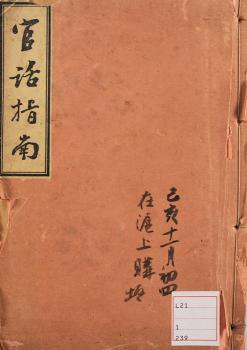 官話指南
己亥十一月初四
在滬上購
L21
1
239